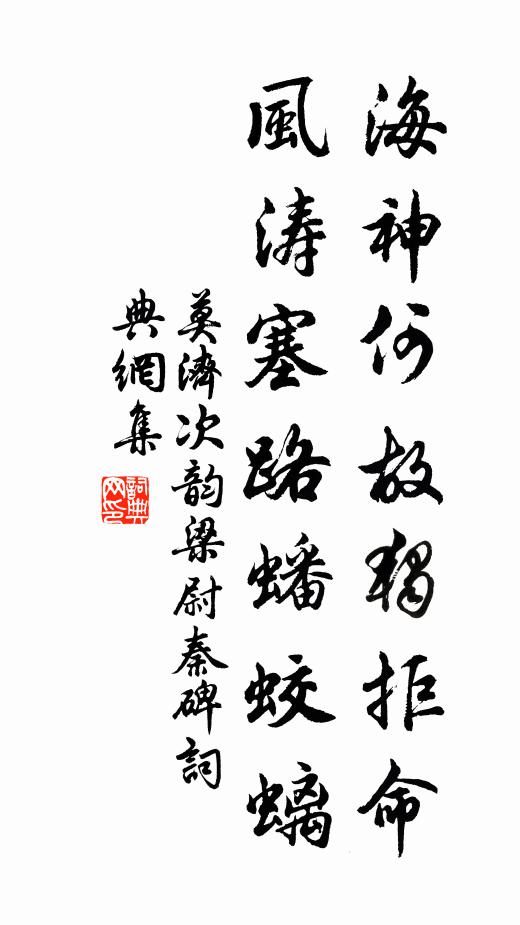 海神何故獨拒命
風濤塞路蟠蛟螭
莫濟次韵梁尉秦碑詞
典網集
詞典網印